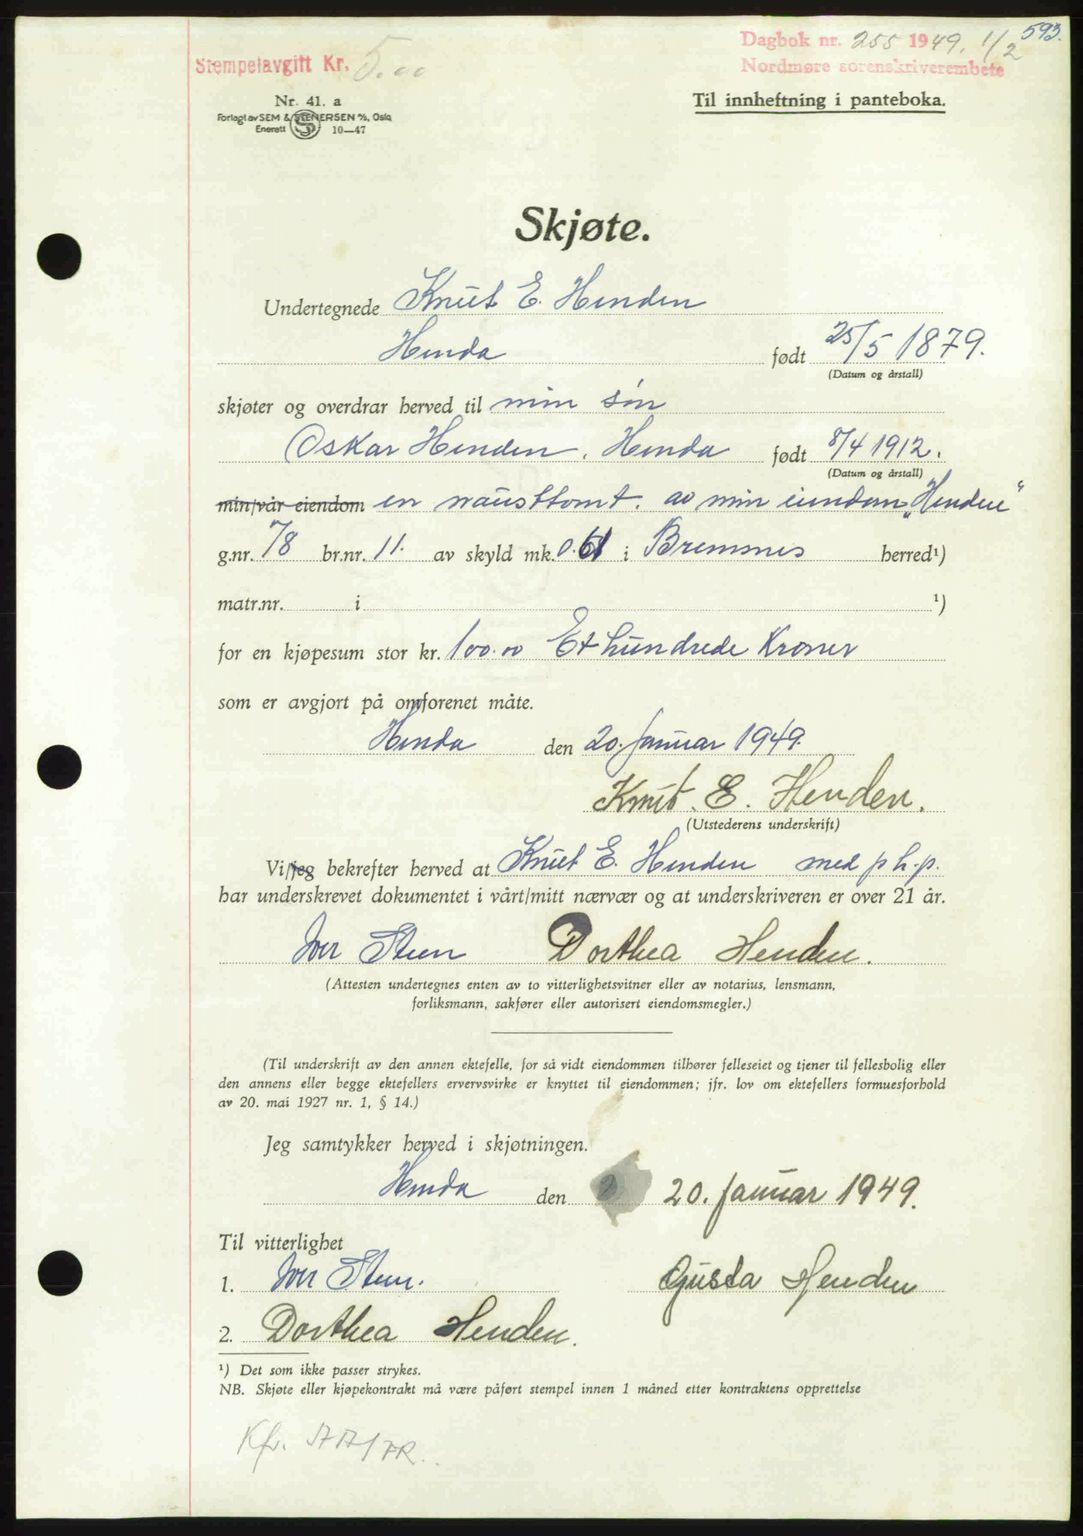 593.
Dagbok nr. 255 1949. 1/2
Stempelavgift Kr. 5.00
Nordmøre sorenskriverembete
Nr. 41. a
Til innheftning i panteboka.
Forlagt av SEM & STENERSEN A/S, Oslo
Enerett S 10—47
Skjøte.
Undertegnede Knut E. Henden
Henda født 25/5 1879.
(Datum og årstall)
skjøter og overdrar herved til min søn
Oskar Henden, Henda født 8/4 1912.
(Datum og årstall)
min/vår eiendom en nausttomt. av min eiendom „Henden“
g.nr. 78 br.nr. 11. av skyld mk. 0.61 i Bremsnes herred¹)
matr.nr. i ¹)
for en kjøpesum stor kr. 100.00 Et hundrede Kroner
som er avgjort på omforenet måte.
Henda den 20. januar 1949.
Knut. E. Henden.
(Utstederens underskrift)
Vi/jeg bekrefter herved at Knut E. Henden med p h.p.
har underskrevet dokumentet i vårt/mitt nærvær og at underskriveren er over 21 år.
Iver Steen Dorthea Henden.
(Attesten undertegnes enten av to vitterlighetsvitner eller av notarius, lensmann,
forliksmann, sakfører eller autorisert eiendomsmegler.)
(Til underskrift av den annen ektefelle, for så vidt eiendommen tilhører felleseiet og tjener til fellesbolig eller
den annens eller begge ektefellers ervervsvirke er knyttet til eiendommen; jfr. lov om ektefellers formuesforhold
av 20. mai 1927 nr. 1, § 14.)
Jeg samtykker herved i skjøtningen.
Henda den 20. januar 1949.
Til vitterlighet
1. Iver Steen. Gusta Henden
2. Dorthea Henden.
¹) Det som ikke passer strykes.
NB. Skjøte eller kjøpekontrakt må være påført stempel innen 1 måned etter kontraktens opprettelse
Kfr.